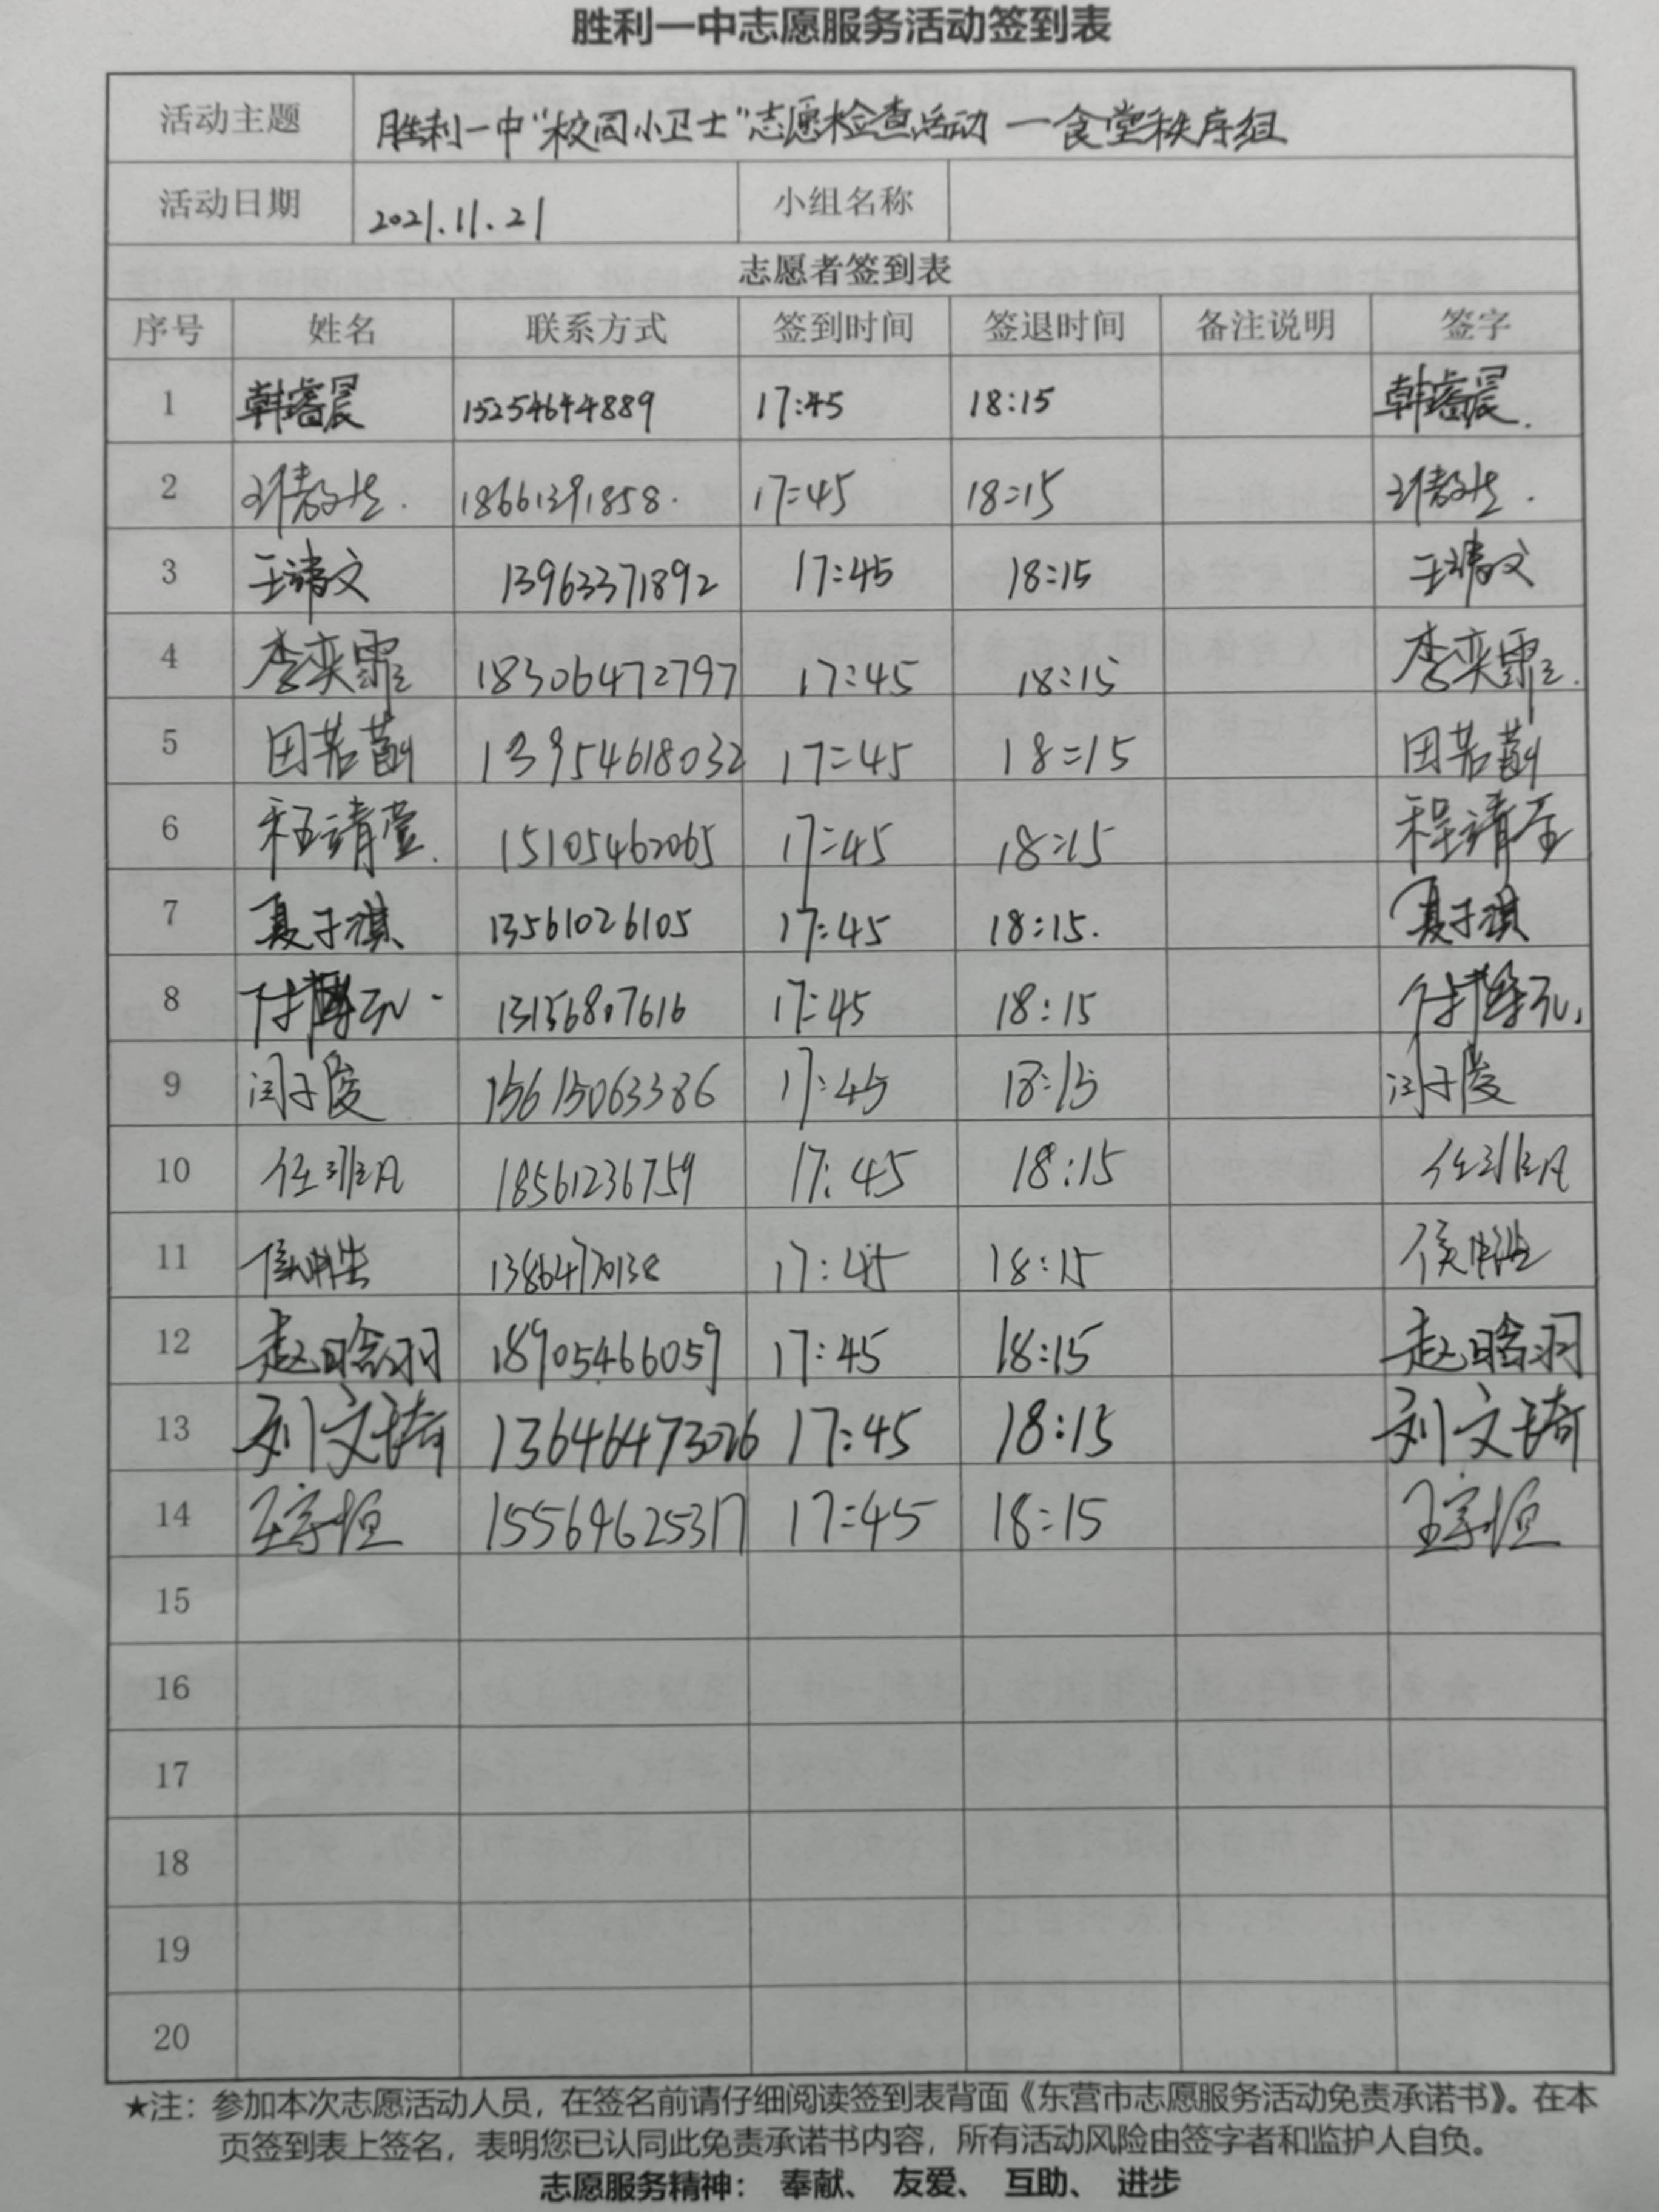 胜利一中志愿服务活动签到表
活动主题 胜利一中“校园小卫士”志愿检查活动 一食堂秩序组
活动日期 2021.11.21 小组名称
志愿者签到表
序号 姓名 联系方式 签到时间 签退时间 备注说明 签字
1 韩睿晨 15254644889 17:45 18:15 韩睿晨.
2 18661391858. 17:45 18:15
3 王靖文 13963371892 17:45 18:15 王靖文
4 李奕霏 18306472797 17:45 18:15 李奕霏.
5 田若菡 13954618032 17:45 18:15 田若菡
6 程靖萱. 15105462065 17:45 18:15 程靖萱
7 夏子祺 13561026105 17:45 18:15. 夏子祺
8 付博元 13156807616 17:45 18:15 付博元
9 闫子俊 15615063386 17:45 18:15 闫子俊
10 任非凡 18561236759 17:45 18:15 任非凡
11 13864770138 17:45 18:15
12 赵晗羽 18905466059 17:45 18:15 赵晗羽
13 刘文琦 17:45 18:15 刘文琦
14 王宇恒 15569625317 17:45 18:15 王宇恒
15
16
17
18
19
20
★注：参加本次志愿活动人员，在签名前请仔细阅读签到表背面《东营市志愿服务活动免责承诺书》。在本
页签到表上签名，表明您已认同此免责承诺书内容，所有活动风险由签字者和监护人自负。
志愿服务精神： 奉献、 友爱、 互助、 进步